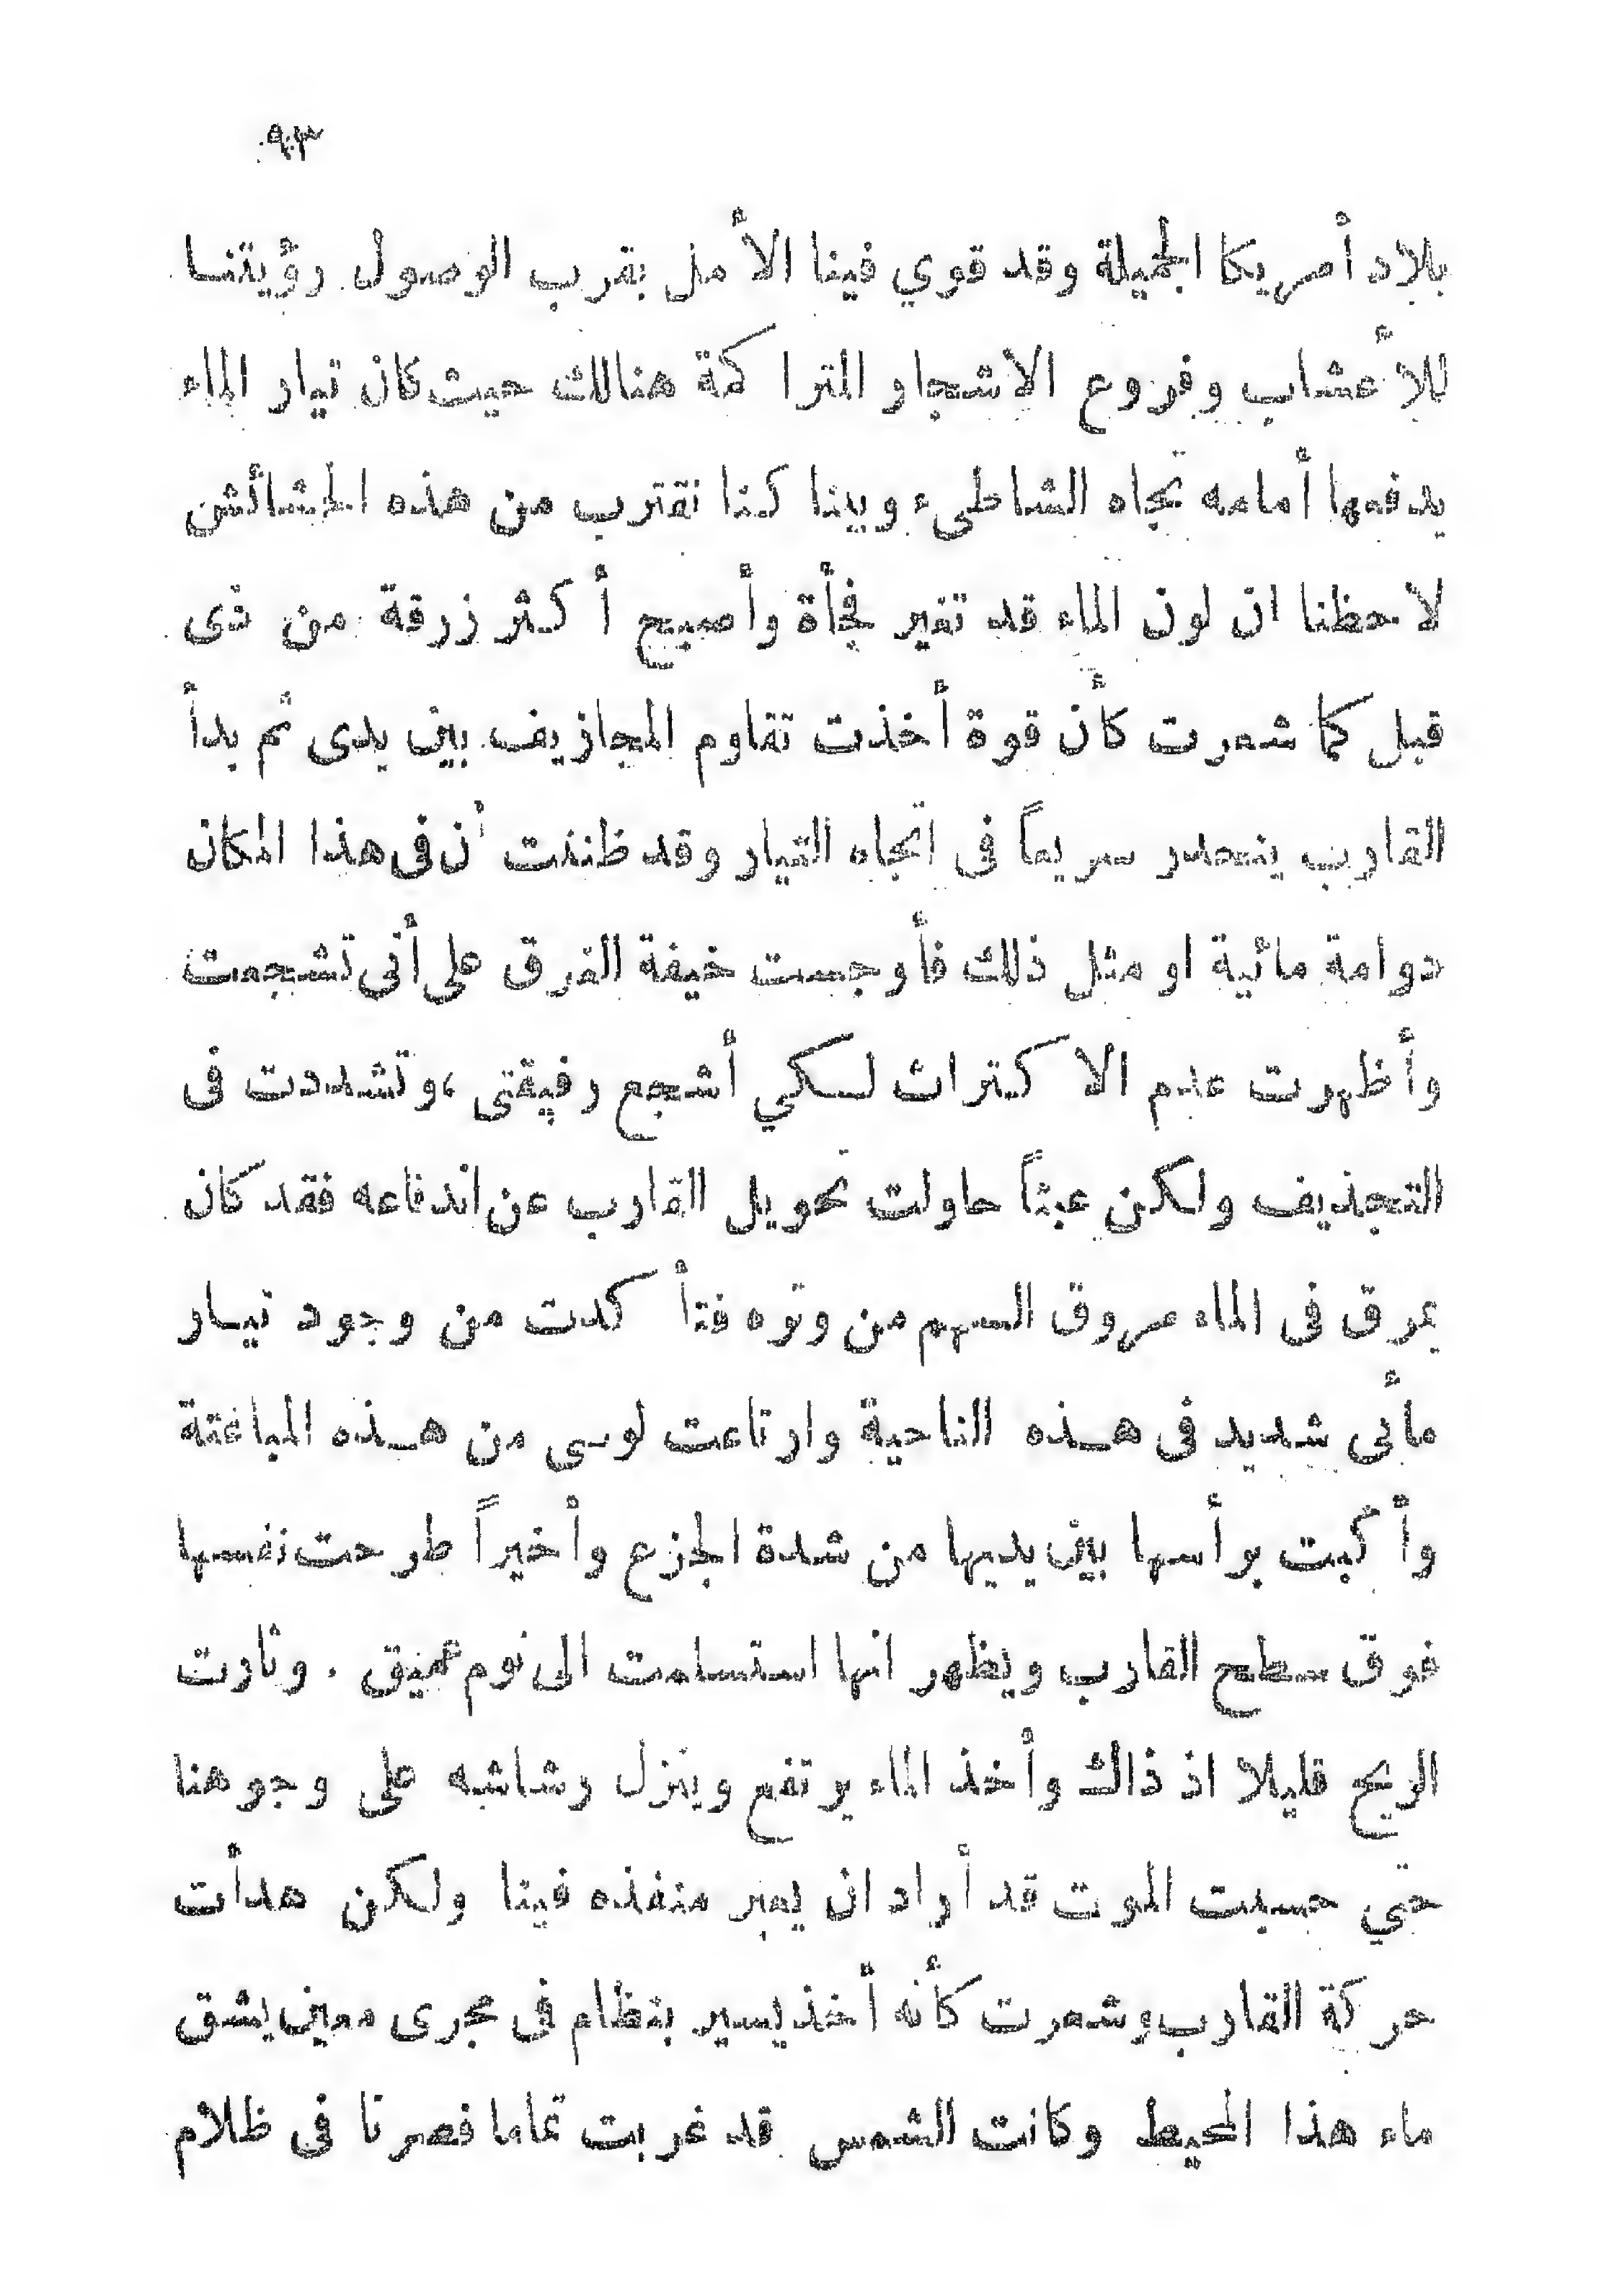 ٩٣
بلاد أمريكا الجميلة وقد قوي فينا الأمل بقرب الوصول رؤيتنا
للأعشاب وفروع الاشجار المتراكمة هنالك حيث كان تيار الماء
يدفعها أمامه تجاه الشاطىء وبينا كنا نقترب من هذه الحشائش
لاحظنا ان لون الماء قد تغير فجأة وأصبح أكثر زرقة من ذى
قبل كما شعرت كأن قوة أخذت تقاوم المجازيف بين يدى ثم بدأ
القارب ينحدر سريعاً فى اتجاه التيار وقد ظننت أن فى هذا المكان
دوامة مائية او مثل ذلك فأوجست خيفة الغرق على أنى تشجعت
وأظهرت عدم الاكتراث لكي أشجع رفيقتى ،وتشددت فى
التجذيف ولكن عبثاً حاولت تحويل القارب عن اندفاعه فقد كان
يمرق فى الماء مروق السهم من وتره فتأكدت من وجود تيار
مائى شديد فى هذه الناحية وارتاعت لوسى من هذه المباغتة
وأكبت برأسها بين يديها من شدة الجزع وأخيراً طرحت نفسها
فوق سطح القارب ويظهر انها استسلمت الى نوم عميق . وثارت
الريح قليلا اذ ذاك وأخذ الماء يرتفع وينزل رشاشه على وجوهنا
حتي حسبت الموت قد أراد ان يعبر منفذه فينا ولكن هدأت
حركة القارب وشعرت كأنه أخذ يسير بنظام فى مجرى معين يشق
ماء هذا المحيط وكانت الشمس قد غربت تماما فصرنا فى ظلام